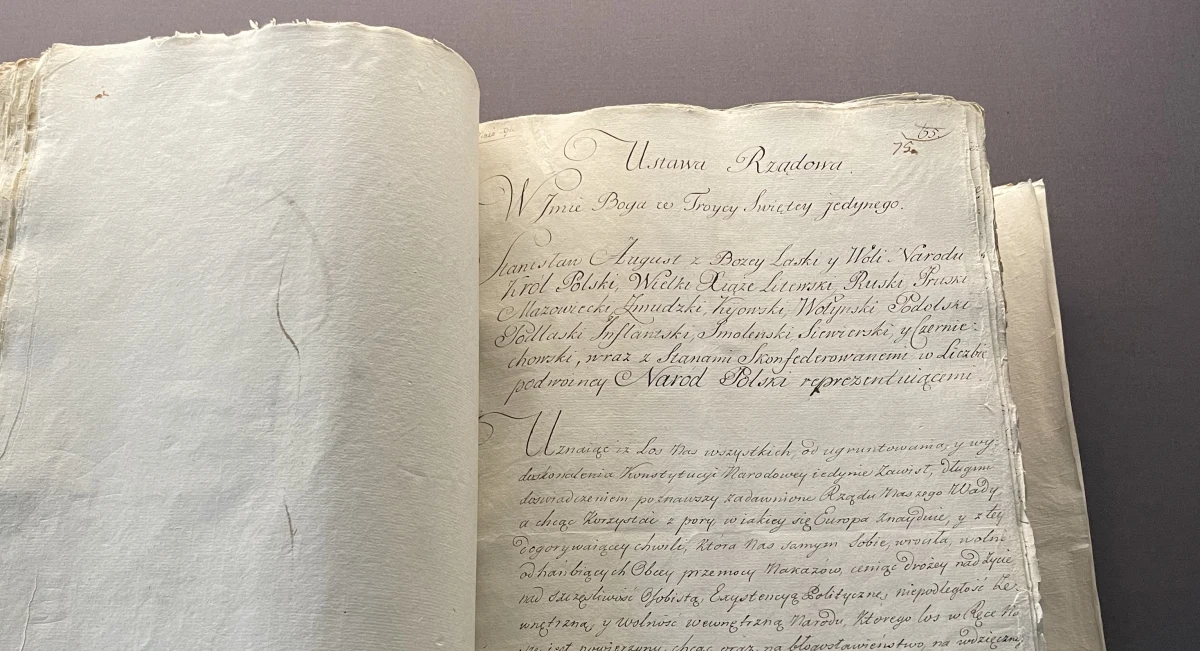 65.
75.
Ustawa Rządowa.
W Jmie Boga w Troycy Swiętey jedynego.
Stanisław August z Bozey Łaski y Woli Narodu
Król Polski, Wielki Xiąże Litewski, Ruski Pruski
Mazowiecki, Zmudzki, Kijowski, Wołynski Podolski
Podlaski Jnflantski, Smolenski Siewierski, y Czernie-
chowski, wraz z Stanami Skonfederowanemi w Liczbie
podwoiney Naród Polski reprezentuiącemi.
Uznaiąc iż Los Nas wszystkich, od ugruntowania, y wy-
doskonalenia Konstytucyi Narodowey iedynie zawisł, długim
doswiadczeniem poznawszy zadawnione Rządu Naszego Wady
a chcąc korzystać z pory, w iakiey się Europa znayduie, y z tey
dogorywaiącey chwili, która Nas samym Sobie, wrociła, wolni
od hańbiących Obcey przemocy Nakazów, ceniąc drożey nad życie,
nad szczęśliwość Osobistą, Exystencyą Polityczną, niepodległość ze-
wnętrzną, y wolność wewnętrzną Narodu, którego los w Ręce Na
iest powierzony, chcąc oraz, na błogosławieństwo, na wdzięczn